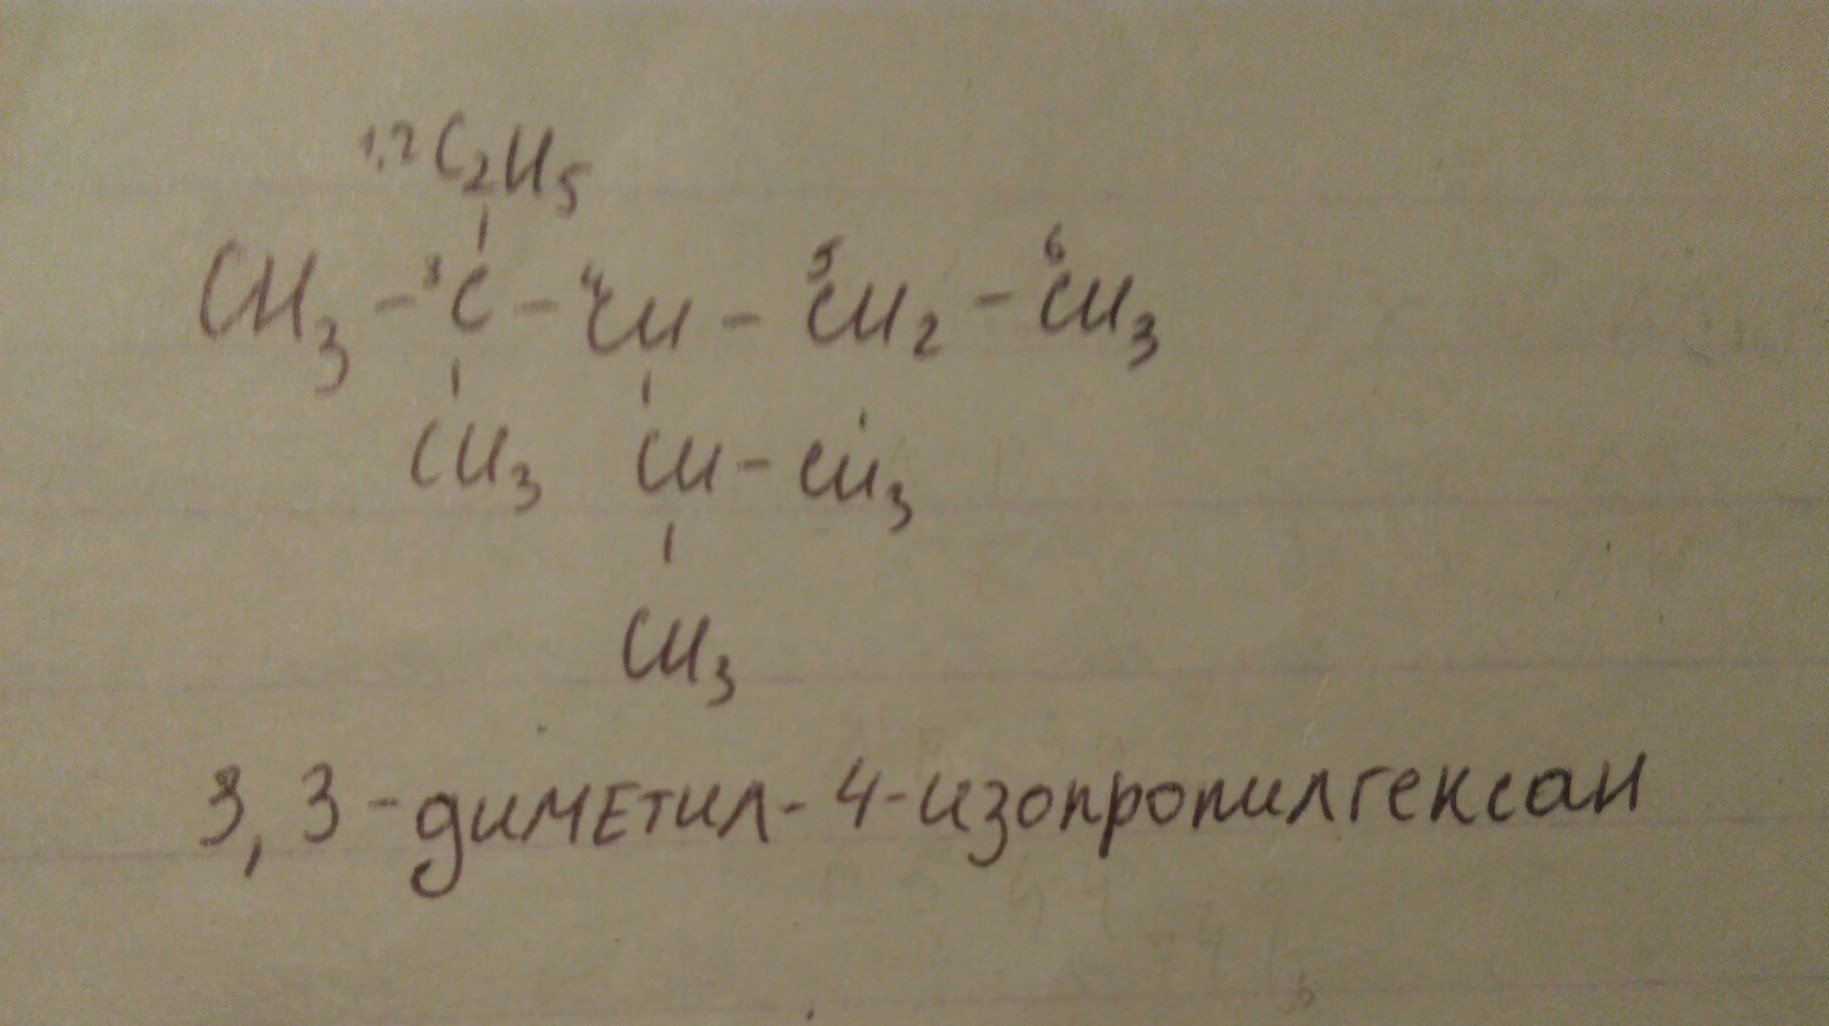 1,2 C₂H₅
CH₃ - ³C - ⁴CH - ⁵CH₂ - ⁶CH₃
CH₃ CH - CH₃
CH₃
3,3-диметил-4-изопропилгексан